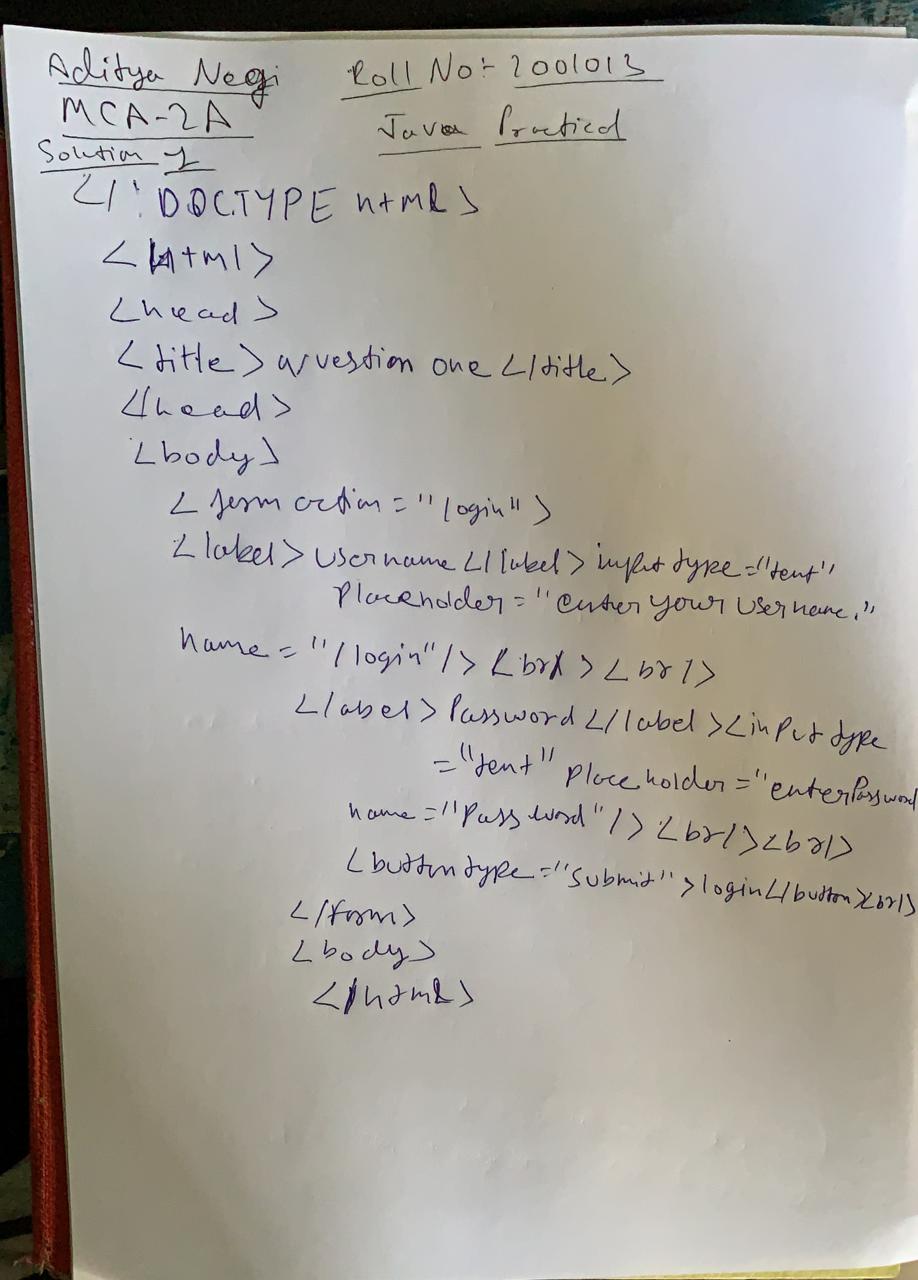 Aditya Negi Roll No:- 2001013
MCA-2A Java Practical
Solution 1
</!DOCTYPE html>
<html>
<head>
<title> Question one </title>
</head>
<body>
< form action = "login">
<label> Username </label> input type="text"
Placeholder = "enter your Username."
name = "/login"/> <br/> <br/>
<label> Password </label> <input type
="text" Placeholder = "enter Password
name = "Password" /> <br/><br/>
<button type="submit">login</button><br/>
</form>
<body>
</html>